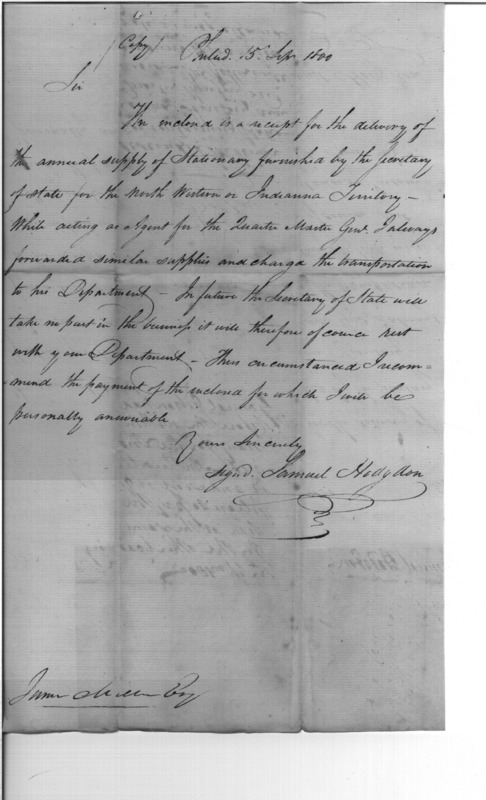 (Copy) Philad. 15 Sepr 1800
Sir
The inclosed is a receipt for the delivery of
the annual supply of Stationary furnished by the Secretary
of State for the North Western or Indianna Territory –
While acting as Agent for the Quarter Master Genl. I always
forwarded similar supplies and charged the transportation
to his Department – In future the Secretary of State will
take no part in the business it will therefore of course rest
with your Department – Thus circumstanced I recom=
mend the payment of the inclosed for which I will be
personally answerable
Yours Sincerely
Signd. Samuel Hodgdon
James Miller Esq